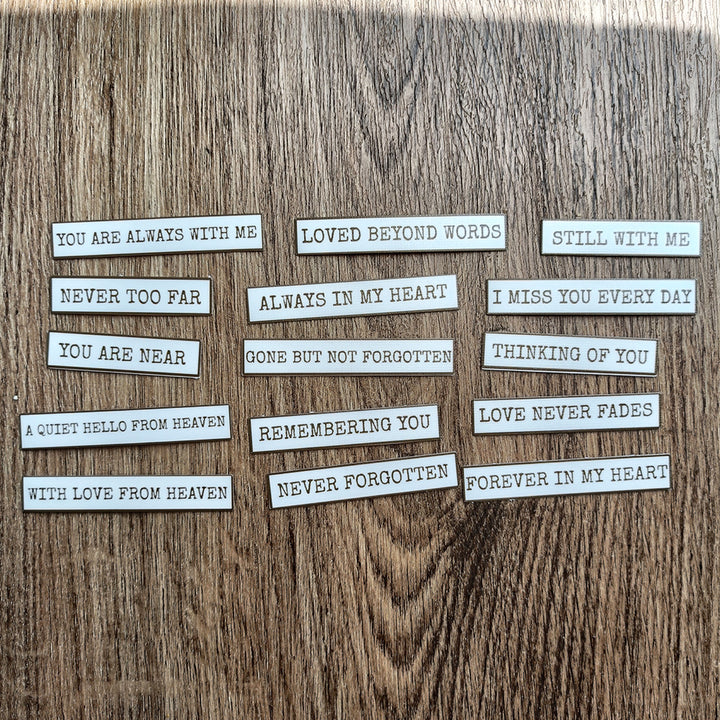 YOU ARE ALWAYS WITH ME
LOVED BEYOND WORDS
STILL WITH ME
NEVER TOO FAR
ALWAYS IN MY HEART
I MISS YOU EVERY DAY
YOU ARE NEAR
GONE BUT NOT FORGOTTEN
THINKING OF YOU
A QUIET HELLO FROM HEAVEN
REMEMBERING YOU
LOVE NEVER FADES
WITH LOVE FROM HEAVEN
NEVER FORGOTTEN
FOREVER IN MY HEART